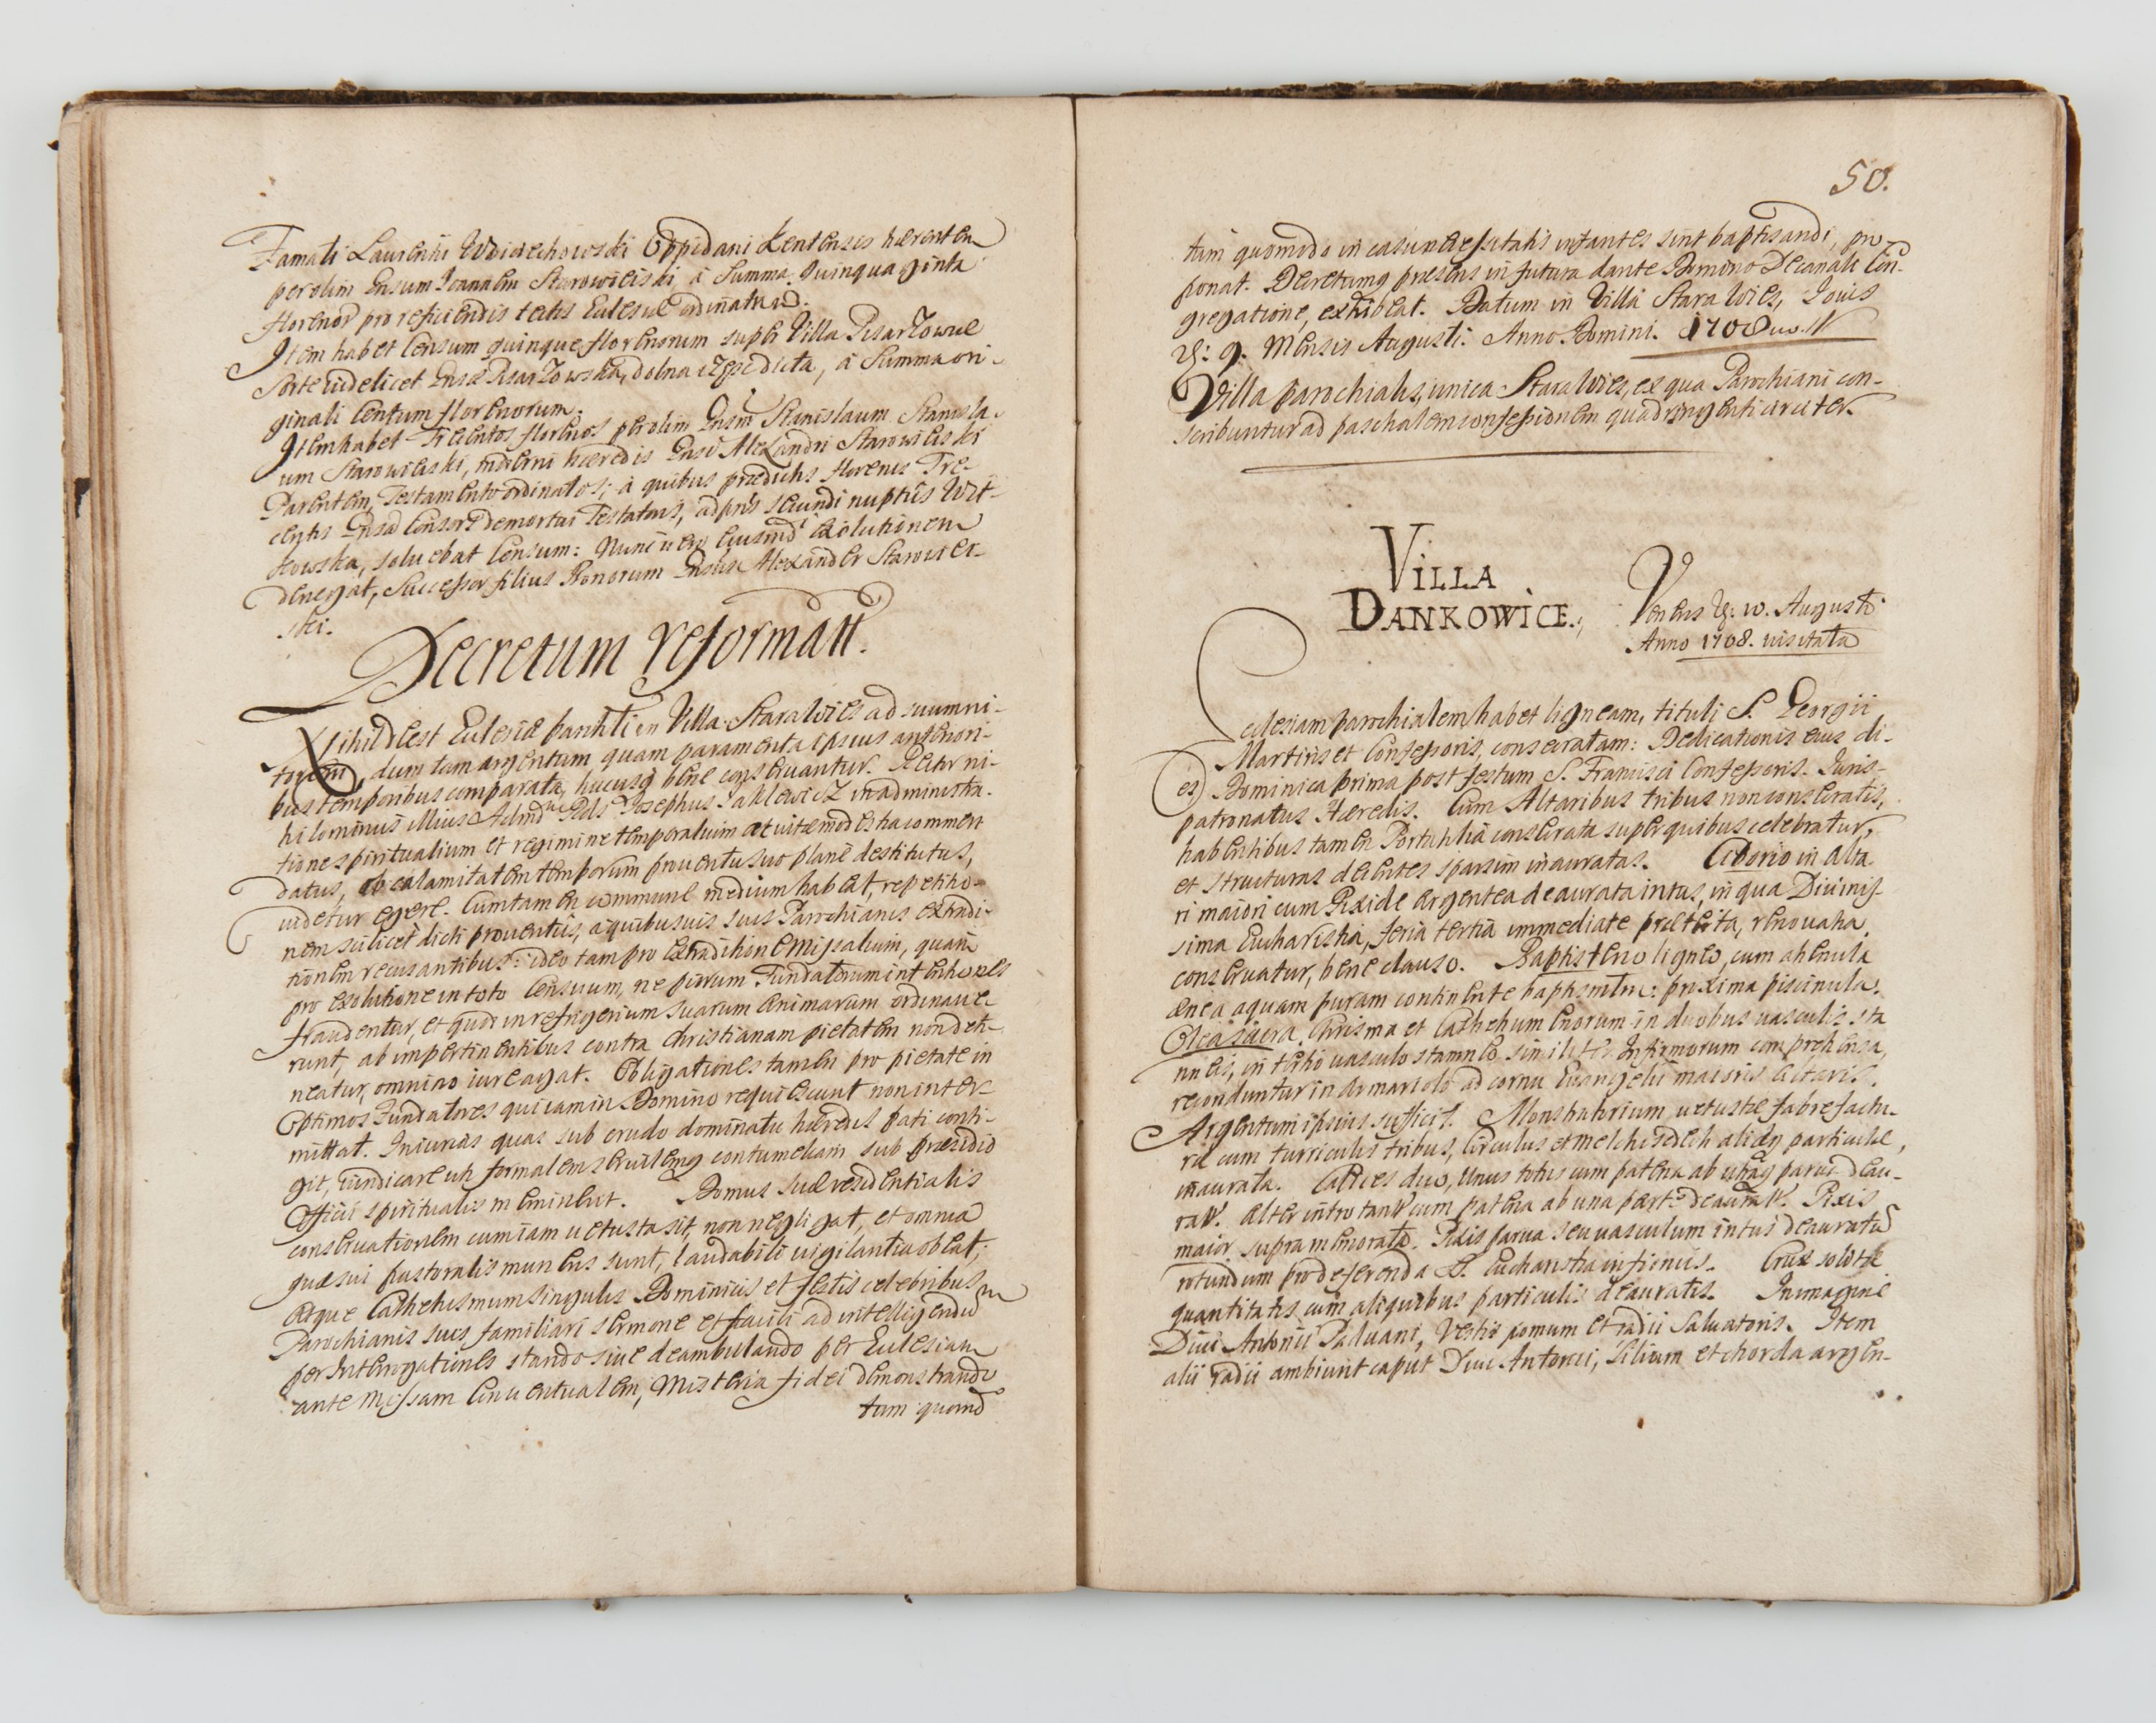 Famati Laurentii Woiciechowski Oppidani Kentensis hærentem
per olim Gnsum Joannem Starowieiski, à Summa Quinquaginta
florenor pro reficiendis tectis Eclesiæ ordinatum.
Item habet Censum quinque florenorum super Villa Pisarzowice
Sorte videlicet Pisarzowska, dolna dicta, à Summa ori-
ginali Centum florenorum.
Item habet Trecentos florenos per olim Gnsm Stanislaum Stanisla-
um Starowieiski, moderni hæredis Gnsi Alexandri Starowieiski
Parentem, Testamento ordinatos; à quibus prædictis florenis Tre-
centis Gnsa Consors demortui Testatoris, secundi nuptiis Wit-
kowska, soluebat Censum: Nunc vero eiusmdi exolutionem
denegat, Successor filius Bonorum Gnsus Alexander Starowiei-
ski.
Decretum reforman̄.
Nihil deest Eclesiæ parochli in Villa Starawies ad suum ni-
torem, dum tam argentum quam paramenta ipsius anteriori-
bus temporibus comparata, hucusq bene conseruantur. Rector ni-
hilominus illius Admd Rdus Josephus Saklewicz in administra-
tione spiritualium et regimine temporalium ac vitæ modestia commen
datus, ob calamitatem temporum prouentu suo planè destitutus,
uidetur egere. Cum tamen commune medium habeat, repetitio-
nem scilicet dicti prouentus, à quibusuis suis Parochianis extradi-
tionem recusantibus: ideo tam pro extraditione Missalium, quàm
pro exolutione in toto Censuum, ne piorum Fundatorum intentiones
fraudentur, et quod in refrigerium suarum animarum ordinaue-
runt, ab impertinentibus contra Christianam pietatem non deti-
neatur, omnino iure agat. Obligationes tamen pro pietate in
Optimos Fundatores qui iam in Domino requiescunt non inter-
mittat. Iniurias quas sub crudo dominatu hæredis pati conti-
git, vindicare uti formalem seruilemq contumeliam sub præsidio
Officii spiritualis meminerit. Domus suæ residentialis
conseruationem cum iam uetusta sit, non negligat, et omnia
quæ sui pastoralis muneris sunt, laudabili uigilantia obeat;
Atque Cathehismum singulis Dominicis et festis celebribus
Parochianis suis familiari sermone et facili ad intelligendum
per Interrogationes stando siue deambulando per Eclesiam
ante Missam Conuentualem, Misteria fidei demonstrando
tum quomd
50.
tum quomodo in casu necessitatis infantes sint baptisandi, pro-
ponat. Decretumq præsens in futura dante Domino Decanali Con-
gregatione, exhibeat. Datum in Villa Starawies, Jouis
9. Mensis Augusti. Anno Domini. 1708uo.
Villa parochialis unica Starawies, ex qua Parochiani con-
scribuntur ad paschalem confessionem quadringenti circiter.
VILLA
DANKOWICE.
Veneris 10. Augusti
Anno 1708. uisitata
Eclesiam parochialem habet ligneam, tituli S. Georgii
Martiris et Confessoris, consecratam: Dedicationis eius di-
es Dominica prima post festum S. Francisci Confessoris. Juris-
patronatus Hæredis. Cum Altaribus tribus non consecratis,
habentibus tamen Portatilia consecrata super quibus celebratur,
et structuras decentes sparsim inauratas. Ciborio in Alta-
ri maiori cum Pixide argentea deaurata intus, in qua Diuinis-
sima Eucharistia, feria tertia immediate præterita, renouata,
conseruatur, bene clauso. Baptisterio ligneo, cum ahenula
ænea aquam puram continente baptismlm: proxima piscinula.
Olea sacra, Chrisma et Cathehumenorum in duobus uasculis sta
nneis, in tertio uasculo stamneo similiter Infirmorum comprehensa,
reconduntur in armariolo ad cornu Euangelii maioris Altaris.
Argentum ipsius sufficit. Monstratorium uetustæ fabrefactu-
ræ cum turriculis tribus, Circulus et melchisedech aliæq particulæ,
inaurata. Calices duo, Unus totus cum patena ab utraq parte deau-
rats. Alter intro tants cum patena ab una parte deaurats. Pixis
maior supra memorata. Pixis parua seu uasculum intus deauratum
rotundum pro deferenda S. Eucharistia infirmis. Crux solitæ
quantitatis cum aliquibus particulis deauratis. In imagine
Diui Antonii Paduani, Vestis pomum et radii Saluatoris. Item
alii radii ambiunt caput Diui Antonii, Lilium et chorda argen-